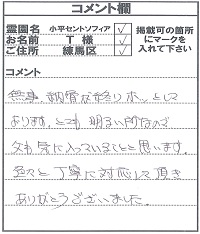 コメント欄
霊園名 小平セントソフィア ✓
お名前 T 様 ✓
ご住所 練馬区 ✓
掲載可の箇所
にマークを
入れて下さい
コメント
無事、納骨が終り ホッとして
おります。とても 明るい所なので
父も気に入っていることと思います。
色々と丁寧に対応して頂き
ありがとうございました。